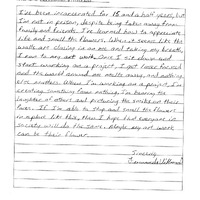 I've been incarcerated for 15 and a half years, but
I'm not in prison, despite being taken away from
family and friends. I've learned how to appreciate
life and smell the flowers. When it seems like the
walls are closing in on me and taking my breath,
I turn to my art work. Once I sit down and
start working on a project, I get hyper focused
and the world around me melts away, and nothing
else matters. When I'm working on a project, I'm
creating something from nothing, I'm hearing the
laughter of others and picturing the smiles on their
faces. If I'm able to stop and smell the flowers
in a place like this, then I hope that everyone in
society will do the same. Maybe my art work
can be their flower.
Sincerely,